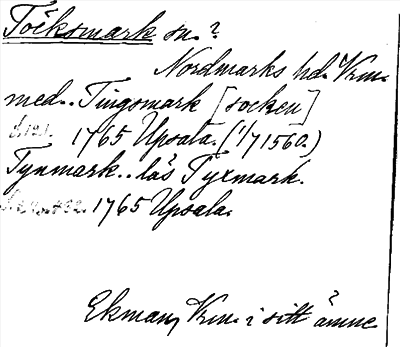 Töcksmark sn.?
Nordmarks hd. Vrm.
med.. Tingsmark [socken]
1765 Upsala. (1/7 1560.)
Tynmark.. läs Tyxmark.
1765 Upsala.
Ekman, Vrm. i sitt ämne